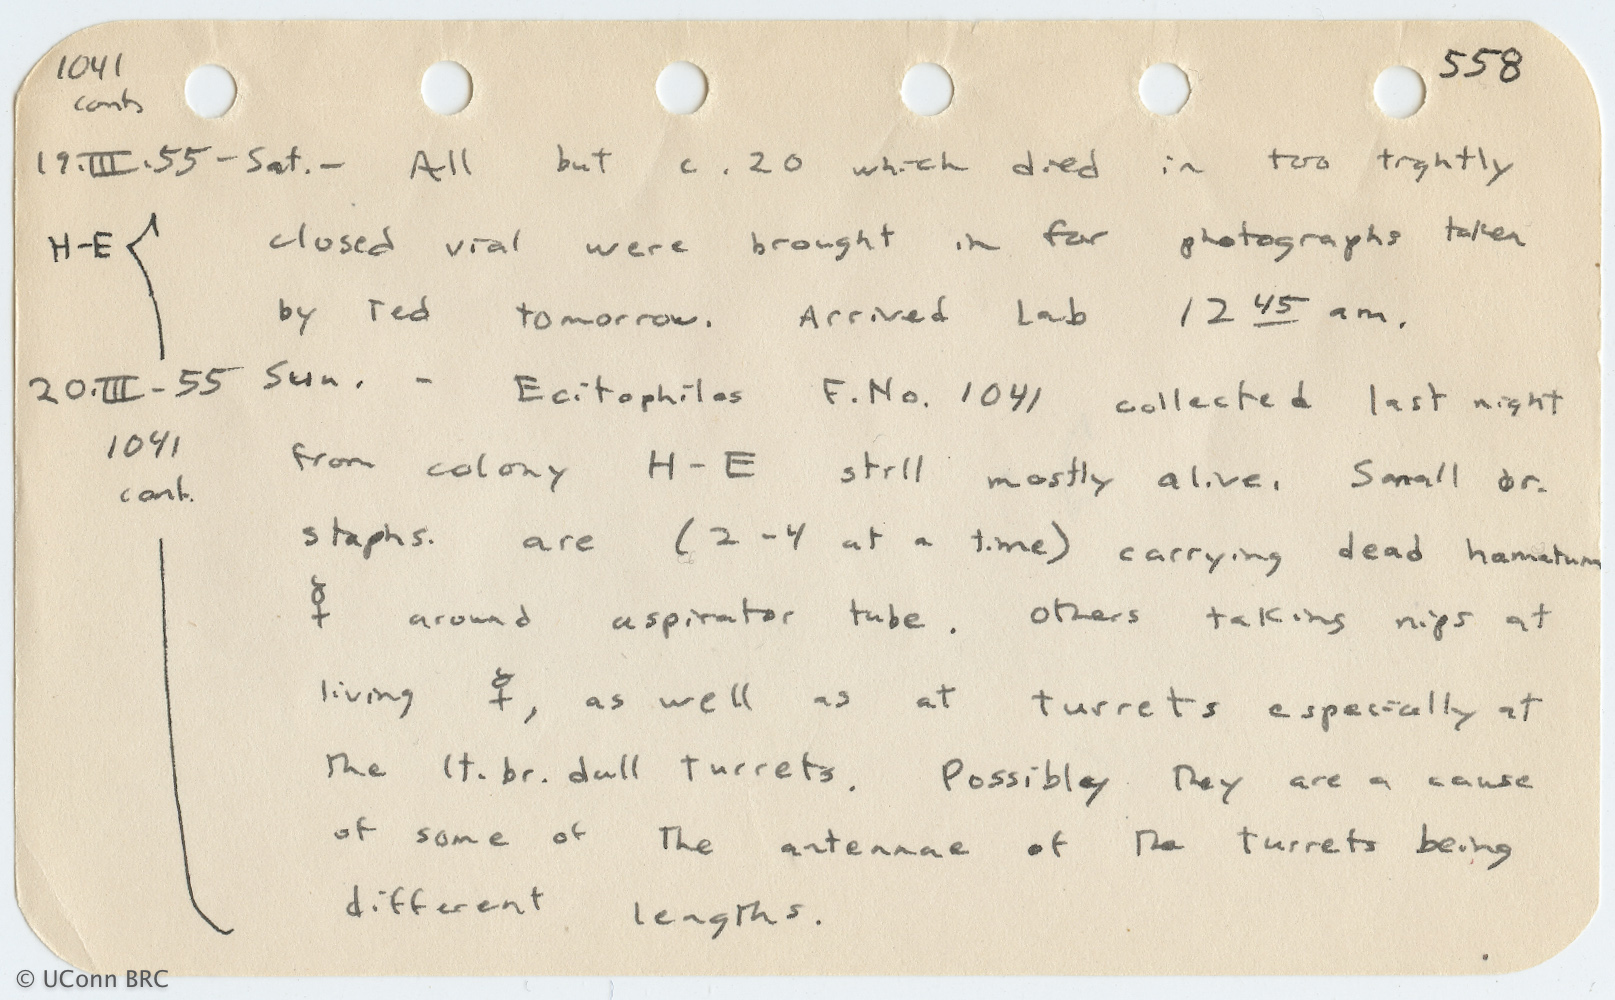 1041 558
cont.
19.III.55-Sat.- All but c. 20 which died in too tightly
H-E closed vial were brought in for photographs taken
by Ted tomorrow. Arrived Lab 12 45 am.
20.III-55 Sun. - Ecitophiles F.No. 1041 collected last night
1041 from colony H-E still mostly alive. Small br.
cont.
staphs. are (2-4 at a time) carrying dead hamatum
☿ around aspirator tube. Others taking nips at
living ☿, as well as at turrets especially at
the lt. br. dull turrets. Possibly they are a cause
of some of the antennae of the turrets being
different lengths.
© UConn BRC